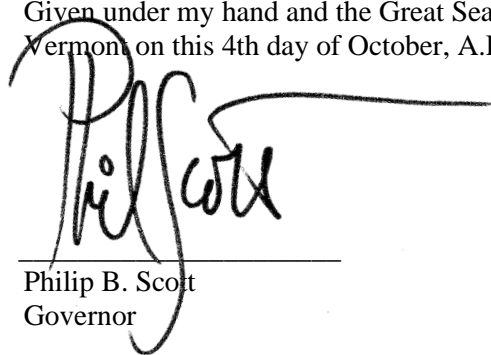 Given under my hand and the Great Sea
Vermont on this 4th day of October, A.
Phil Scott
Philip B. Scott
Governor